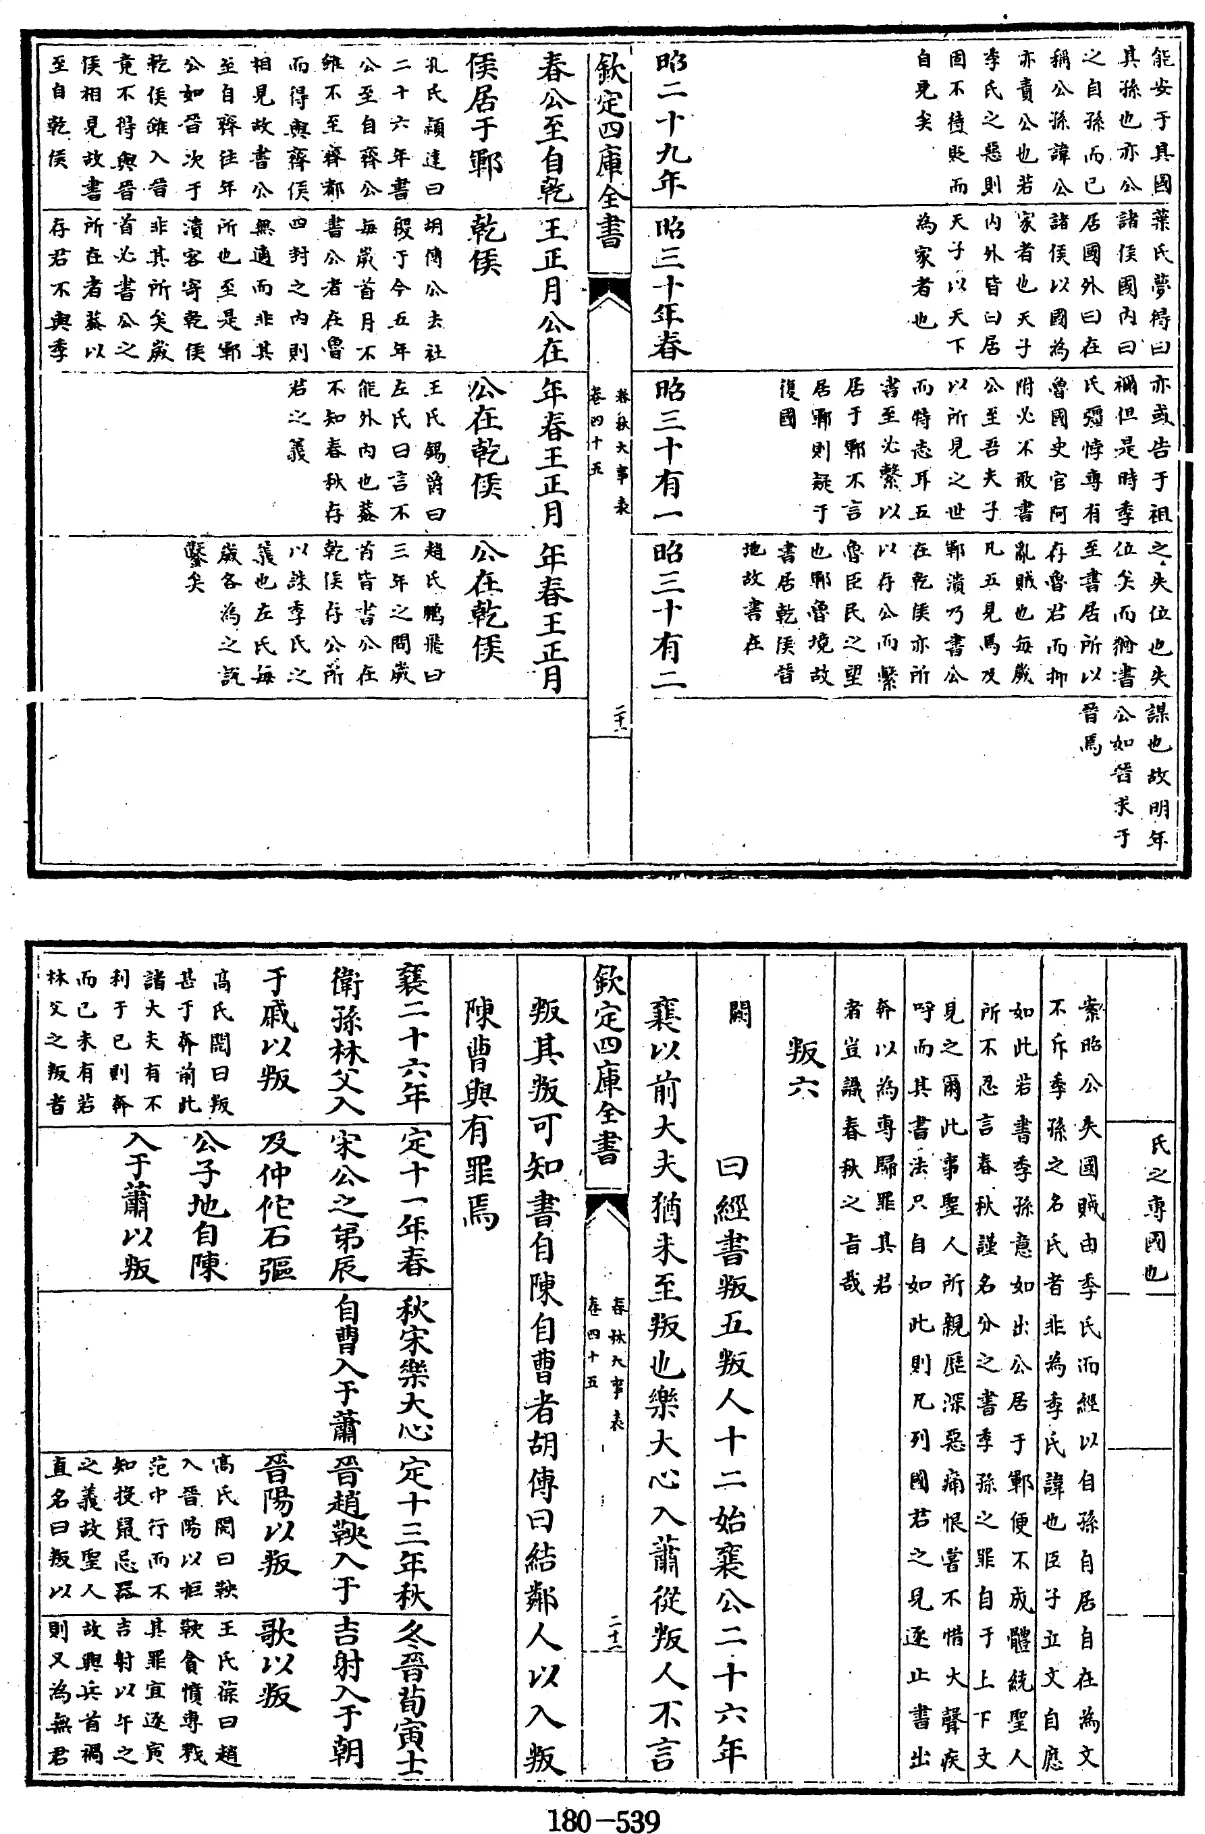 能安于其國
其孫也亦公
之自孫而已
稱公孫諱公
亦責公也若
季氏之惡則
固不待貶而
自見矣
葉氏夢得曰
諸侯國內曰
居國外曰在
諸侯以國為
家者也天子
內外皆曰居
天子以天下
為家者也
亦或告于祖
禰但是時季
氏彊悖專有
魯國史官阿
附必不敢書
公至吾夫子
以所見之世
而特志耳五
書至必繫以
居于鄆不言
居鄆則疑于
復國
之失位也失
位矣而猶書
至書居所以
存魯君而抑
亂賊也每歲
凡五見焉及
鄆潰乃書公
在乾侯亦所
以存公而繫
魯臣民之望
也鄆魯境故
書居乾侯晉
地故書在
謀也故明年
公如晉求于
晉焉
昭二十九年
昭三十年春
昭三十有一
昭三十有二
欽定四庫全書
春秋大事表
卷四十五
二十一
春公至自乾
侯居于鄆
孔氏頴達曰
二十六年書
公至自齊公
雖不至齊都
而得與齊侯
相見故書公
至自齊往年
公如晉次于
乾侯雖入晉
竟不得與晉
侯相見故書
至自乾侯
王正月公在
乾侯
胡傳公去社
稷于今五年
每歲首月不
書公者在魯
四封之內則
無適而非其
所也至是鄆
潰客寄乾侯
非其所矣歲
首必書公之
所在者蓋以
存君不與季
年春王正月
公在乾侯
王氏錫爵曰
左氏曰言不
能外內也蓋
不知春秋存
君之義
年春王正月
公在乾侯
趙氏鵬飛曰
三年之間歲
首皆書公在
乾侯存公所
以誅季氏之
義也左氏每
歲各為之説
鑿矣
氏之專國也
案昭公失國賊由季氏而經以自孫自居自在為文
不斥季孫之名氏者非為季氏諱也臣子立文自應
如此若書季孫意如出公居于鄆便不成體統聖人
所不忍言春秋謹名分之書季孫之罪自于上下文
見之爾此事聖人所親歴深惡痛恨嘗不惜大聲疾
呼而其書法只自如此則凡列國君之見逐止書出
奔以為專歸罪其君
者豈識春秋之旨哉
叛六
闕 曰經書叛五叛人十二始襄公二十六年
襄以前大夫猶未至叛也樂大心入蕭從叛人不言
欽定四庫全書
春秋大事表
卷四十五
二十二
叛其叛可知書自陳自曹者胡傳曰結鄰人以入叛
陳曹與有罪焉
襄二十六年
衛孫林父入
于戚以叛
高氏閌曰叛
甚于奔前此
諸大夫有不
利于已則奔
而已未有若
林父之叛者
定十一年春
宋公之弟辰
及仲佗石彄
公子地自陳
入于蕭以叛
秋宋樂大心
自曹入于蕭
定十三年秋
晉趙鞅入于
晉陽以叛
高氏閌曰鞅
入晉陽以拒
范中行而不
知投鼠忌器
之義故聖人
直名曰叛以
冬晉荀寅士
吉射入于朝
歌以叛
王氏葆曰趙
鞅貪憤專戮
其罪宜逐寅
吉射以午之
故興兵首禍
則又為無君
180-539